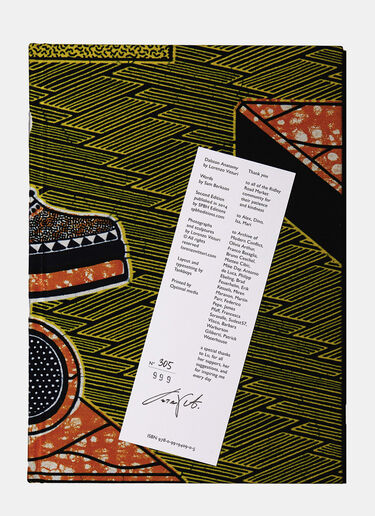 Dalston Anatomy
by Lorenzo Vitturi
Words
by Sam Berkson
Second Edition
published in 2014
by SPBH Editions
spbheditions.com
Photographs
and sculptures
by Lorenzo Vitturi
© All rights
reserved
lorenzovitturi.com
Layout and
typesetting by
Tankboys
Printed by
Optimal media
Thank you
to all of the Ridley
Road Market
community for
their patience
and kindness
to Alex, Dino,
Ila, Mari
to Archive of
Modern Conflict,
Olivia Arthur,
France Benoglio,
Bruno Ceschel,
Manuel Cibic,
Mike Day, Antonio
de Luca, Philipp
Ebeling, Brad
Feuerhelm, Erik
Kessels, Miren
Marañón, Martin
Parr, Federico
Pepe, Jones
Pfaff, Francesca
Seravalle, Sudest57,
Visco, Barbara
Warburton
Giliberti, Patrick
Waterhouse
a special thanks
to Lo, for all
her support, her
suggestions, and
for inspiring me
every day
Nº 305
999
ISBN 978-0-9929409-0-5